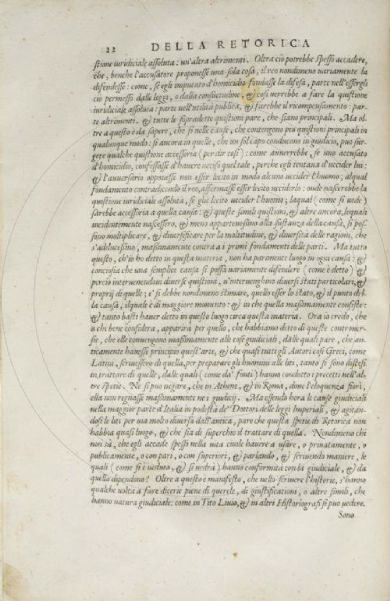 22 DELLA RETORICA
stione iuridiciale assoluta: un'altra altrimenti. Oltra ciò potrebbe spesso accadere,
che, benche l'accusatore proponesse una sola cosa, il reo nondimeno variamente la
difendesse: come, se egli imputato d'homicidio fondasse la difesa, parte nell'essergli
ciò permesso dalla legge, o dalla consuetudine, & così verrebbe a fare la questione
iuridiciale assoluta: parte nell'utilità publica, & sarebbe il ricompensamento: par-
te altrimenti. & tutte le sopradette questioni pare, che siano principali. Ma ol-
tre a questo è da sapere, che si nelle cause, che contengono più questioni principali in
qualunque modo: si ancora in quelle, che un sol capo conducono in giudicio, può sur-
gere qualche questione accessoria (per dir così): come auuerrebbe, se uno accusato
d'homicidio, confessasse d'hauere ucciso quel tale, perche egli tentaua d'uccider lui:
& l'auuersario opponesse non esser lecito in modo alcuno uccider l'huomo; al qual
fondamento contradicendo il reo, affermasse esser lecito ucciderlo: onde nascerebbe la
questione iuridiciale assoluta, se gliè lecito uccider l'huomo; laqual (come si uede)
sarebbe accessoria a quella causa: & queste simili questioni, & altre ancora, lequali
accidentalmente nascessero, meno appartenessino alla sustanza della causa, si pos-
sono moltiplicare, & diuersificare per la moltitudine, & diuersità delle ragioni, che
s'adducessino, massimamente contra a i primi fondamenti delle parti. Ma tutto
questo, ch'io ho detto in questa materia, non ha parimente luogo in ogni causa: &
concosia che una semplice causa si possa variamente difendere (come è detto) &
perciò interuenendoui diuerse questioni, u'interuenghino diuersi stati particolari, &
proprij di quelle; e' si debbe nondimeno stimare, quello esser lo stato, & il punto del-
la causa, ilquale è di maggiore momento: & in che quella massimamente consiste:
& tanto basti hauer detto in questo luogo circa questa materia. Ora io credo, che
a chi bene considera, apparirà per quello, che habbiamo detto di queste controuer-
sie, che elle conuengono massimamente alle cose giudiciali, dalle quali pare, che an-
ticamente hauesse principio quest'arte, & che quasi tutti gli Autori così Greci, come
Latini, seruissero di quella, per preparare gli huomini alle liti, tanto si sono distesi
in trattare di quelle, dalle quali (come da fonti) hanno condotto i precetti nell'al-
tre spetie. Ne si può negare, che in Athene, & in Roma, doue l'eloquenza fiorì,
ella non regnasse massimamente ne i giudicij. Ma essendo hora le cause giudiciali
nella maggior parte d'Italia in podestà de' Dottori delle leggi Imperiali, & agitan-
dosi le liti per uia molto diuersa dall'antica, pare che questa spetie di Retorica non
habbia quasi luogo, & che sia di superchio il trattare di quella. Nondimeno chi
non sà, che egli accade spesso nella uita ciuile hauere a usare, o priuatamente, o
publicamente, o con pari, o con superiori, & parlando, & scriuendo maniere, le
quali (come si è ueduto, & si mostra) hanno conformità con la giudiciale, & da
quella dipendono? Oltre a questo è manifesto, che nello scriuere l'historie, s'hanno
qualche uolta a fare dicerie piene di querele, di giustificationi, o altre simili, che
hanno natura giudiciale: come in Tito Liuio, & in altri Historiografi si può uedere.
Sono